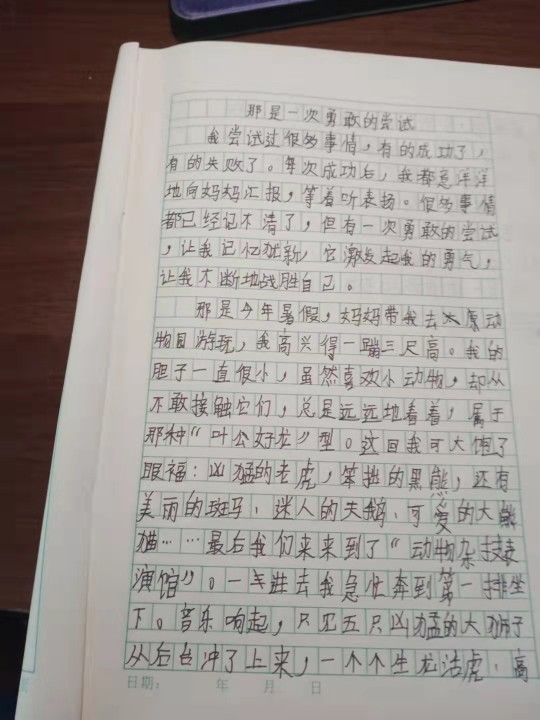 那是一次勇敢的尝试
我尝试过很多事情，有的成功了，
有的失败了。每次成功后，我都喜洋洋
地向妈妈汇报，等着听表扬。很多事情
都已经记不清了，但有一次勇敢的尝试
，让我记忆犹新，它激发起我的勇气，
让我不断地战胜自己。
那是今年暑假，妈妈带我去太原动
物园游玩，我高兴得一蹦三尺高。我的
胆子一直很小，虽然喜欢小动物，却从
不敢接触它们，总是远远地看着，属于
那种“叶公好龙”型。这回我可大饱了
眼福：凶猛的老虎，笨拙的黑熊，还有
美丽的斑马、迷人的天鹅、可爱的大熊
猫……最后我们来来到了“动物杂技表
演馆”。一进去我急忙奔到第一排坐
下。音乐响起，只见五只凶猛的大狮子
从后台冲了上来，一个个生龙活虎，高
日期： 年 月 日